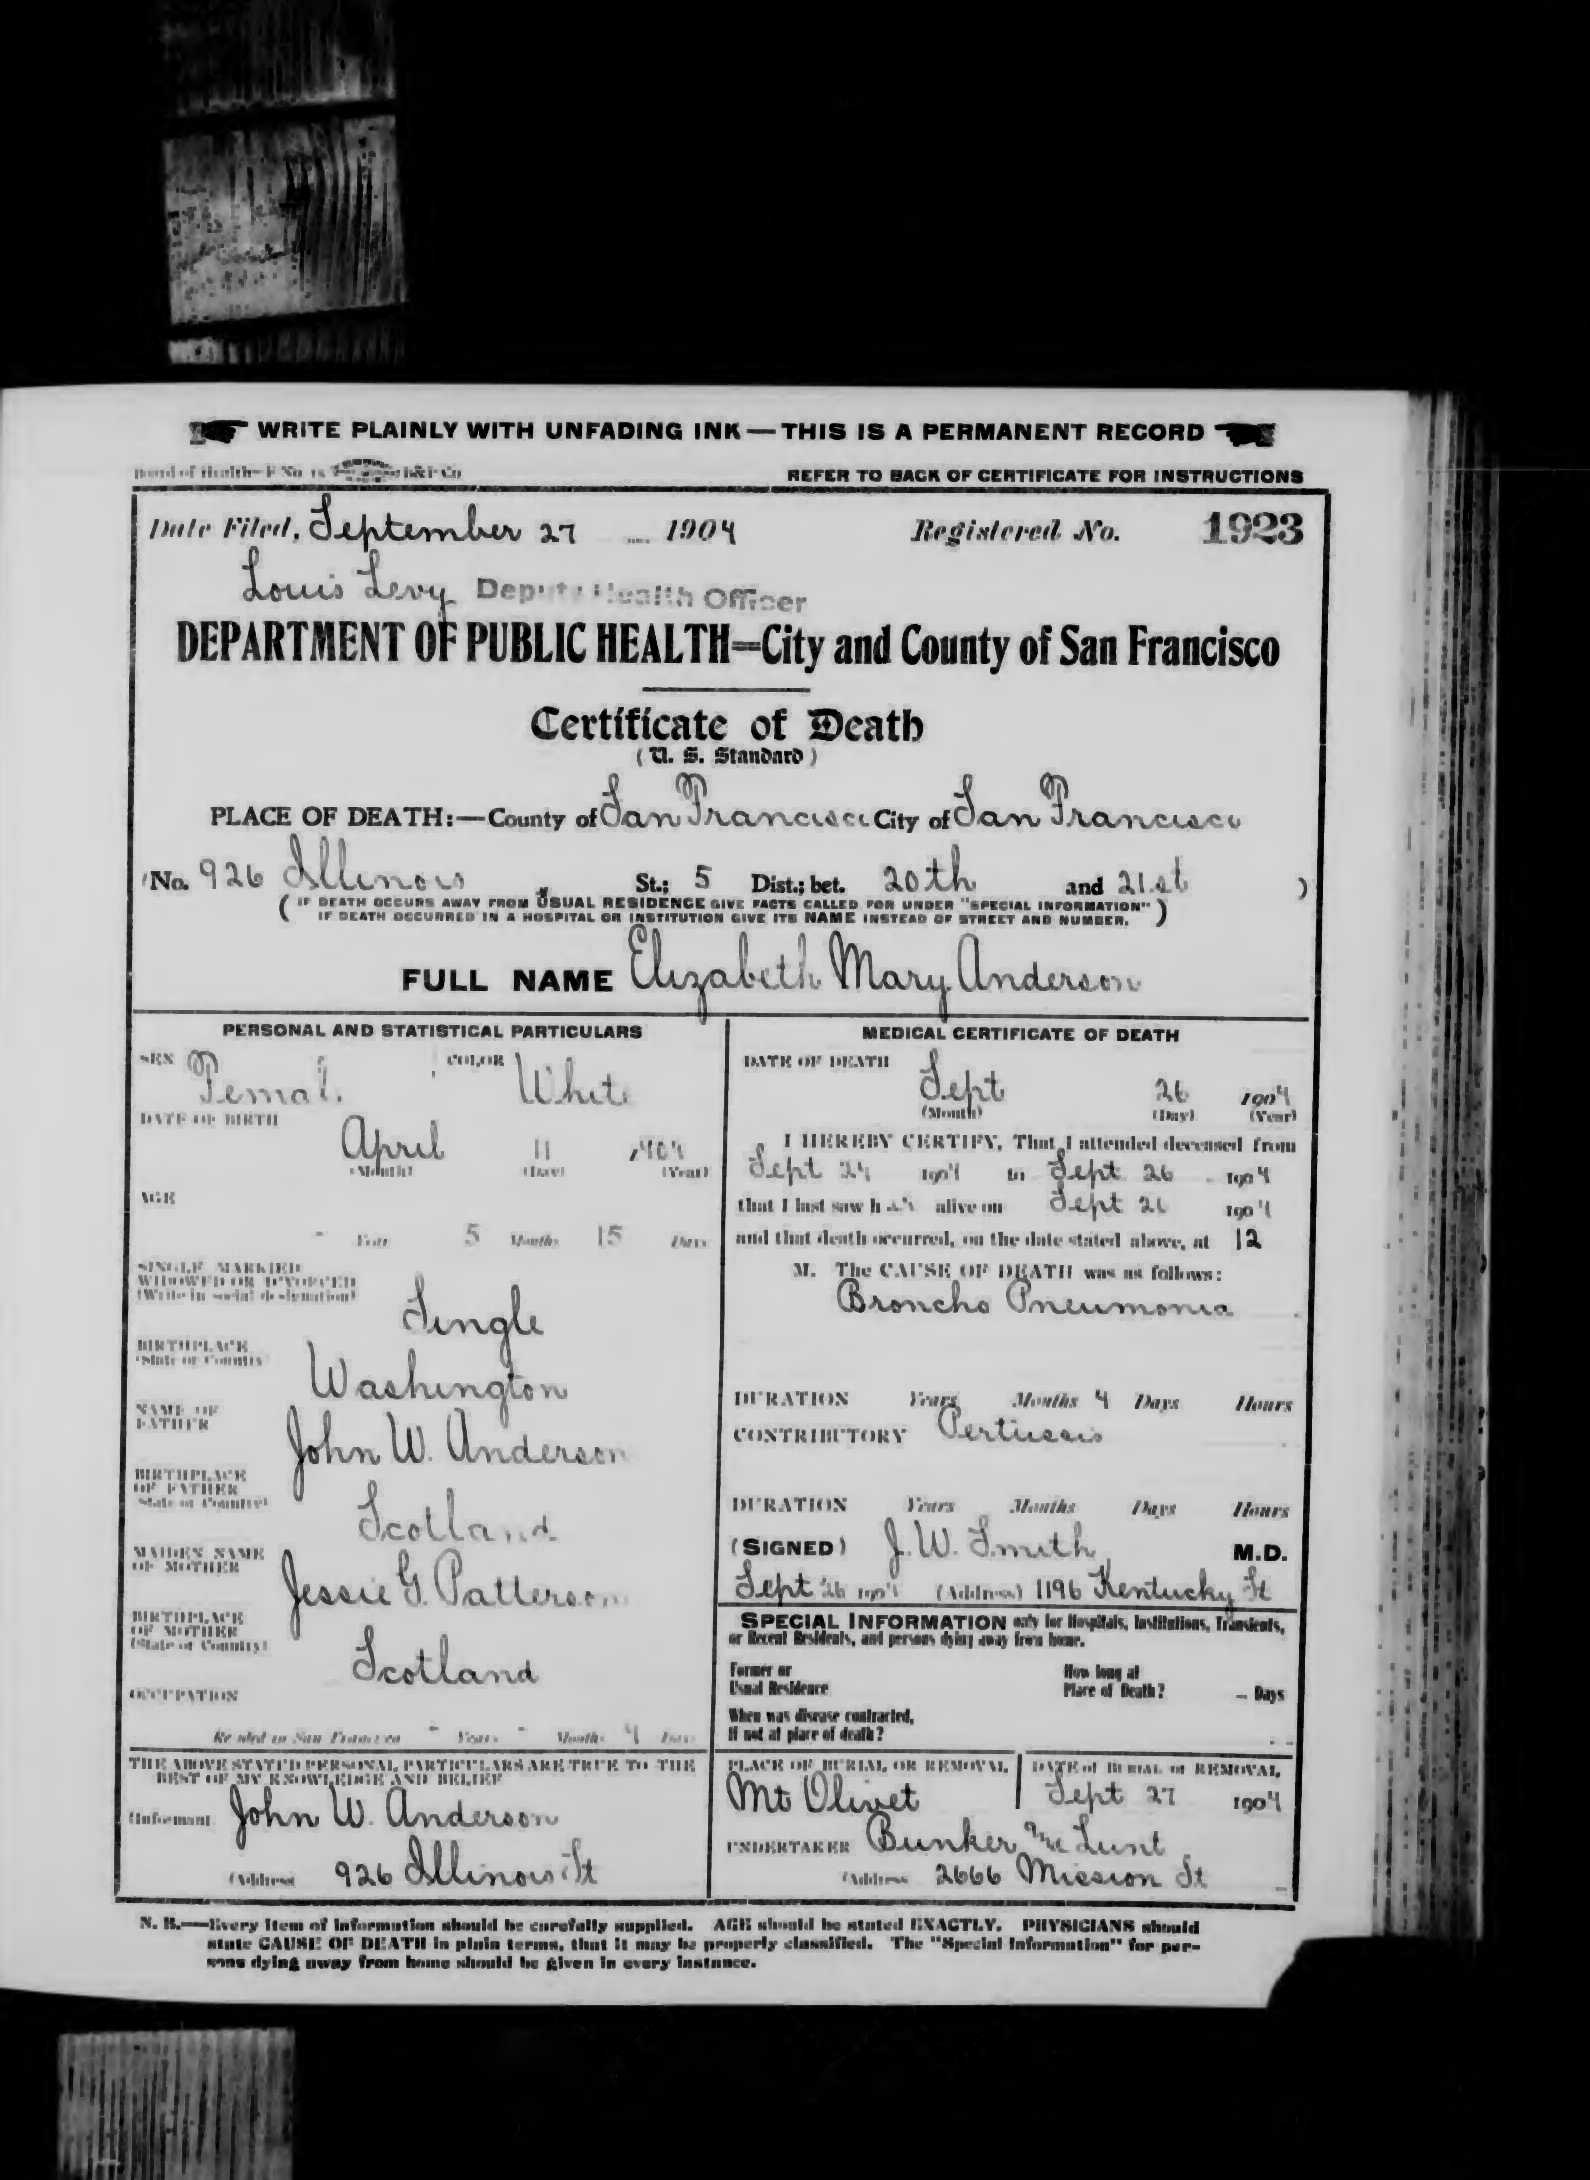 WRITE PLAINLY WITH UNFADING INK — THIS IS A PERMANENT RECORD
Board of Health—F No. 15 B&P Co
REFER TO BACK OF CERTIFICATE FOR INSTRUCTIONS
Date Filed, September 27 1904 Registered No. 1923
Louis Levy Deputy Health Officer
DEPARTMENT OF PUBLIC HEALTH=City and County of San Francisco
Certificate of Death
(U. S. Standard)
PLACE OF DEATH:—County of San Francisco City of San Francisco
(No. 926 Illinois St.; 5 Dist.; bet. 20th and 21st )
( IF DEATH OCCURS AWAY FROM USUAL RESIDENCE GIVE FACTS CALLED FOR UNDER "SPECIAL INFORMATION"
IF DEATH OCCURRED IN A HOSPITAL OR INSTITUTION GIVE ITS NAME INSTEAD OF STREET AND NUMBER. )
FULL NAME Elizabeth Mary Anderson
PERSONAL AND STATISTICAL PARTICULARS
SEX Female COLOR White
DATE OF BIRTH
April 11 1904
(Month) (Day) (Year)
AGE
- Years 5 Months 15 Days
SINGLE MARRIED
WIDOWED OR DIVORCED
(Write in social designation)
Single
BIRTHPLACE
(State or Country)
Washington
NAME OF
FATHER
John W. Anderson
BIRTHPLACE
OF FATHER
(State or Country)
Scotland
MAIDEN NAME
OF MOTHER
Jessie G. Patterson
BIRTHPLACE
OF MOTHER
(State or Country)
Scotland
OCCUPATION
Resided in San Francisco - Years - Months 4 Days
THE ABOVE STATED PERSONAL PARTICULARS ARE TRUE TO THE
BEST OF MY KNOWLEDGE AND BELIEF
(Informant John W. Anderson
(Address 926 Illinois St
MEDICAL CERTIFICATE OF DEATH
DATE OF DEATH
Sept 26 1904
(Month) (Day) (Year)
I HEREBY CERTIFY, That I attended deceased from
Sept 24 1904 to Sept 26 1904
that I last saw her alive on Sept 26 1904
and that death occurred, on the date stated above, at 12
M. The CAUSE OF DEATH was as follows:
Broncho Pneumonia
DURATION Years Months 4 Days Hours
CONTRIBUTORY Pertussis
DURATION Years Months Days Hours
(SIGNED) J. W. Smith M.D.
Sept 26 1904 (Address) 1196 Kentucky St
SPECIAL INFORMATION only for Hospitals, Institutions, Transients,
or Recent Residents, and persons dying away from home.
Former or
Usual Residence
How long at
Place of Death? Days
When was disease contracted,
If not at place of death?
PLACE OF BURIAL OR REMOVAL
Mt Olivet
DATE of BURIAL or REMOVAL
Sept 27 1904
UNDERTAKER Bunker & Lunt
(Address 2666 Mission St
N. B.—Every item of information should be carefully supplied. AGE should be stated EXACTLY. PHYSICIANS should
state CAUSE OF DEATH in plain terms, that it may be properly classified. The "Special Information" for per-
sons dying away from home should be given in every instance.